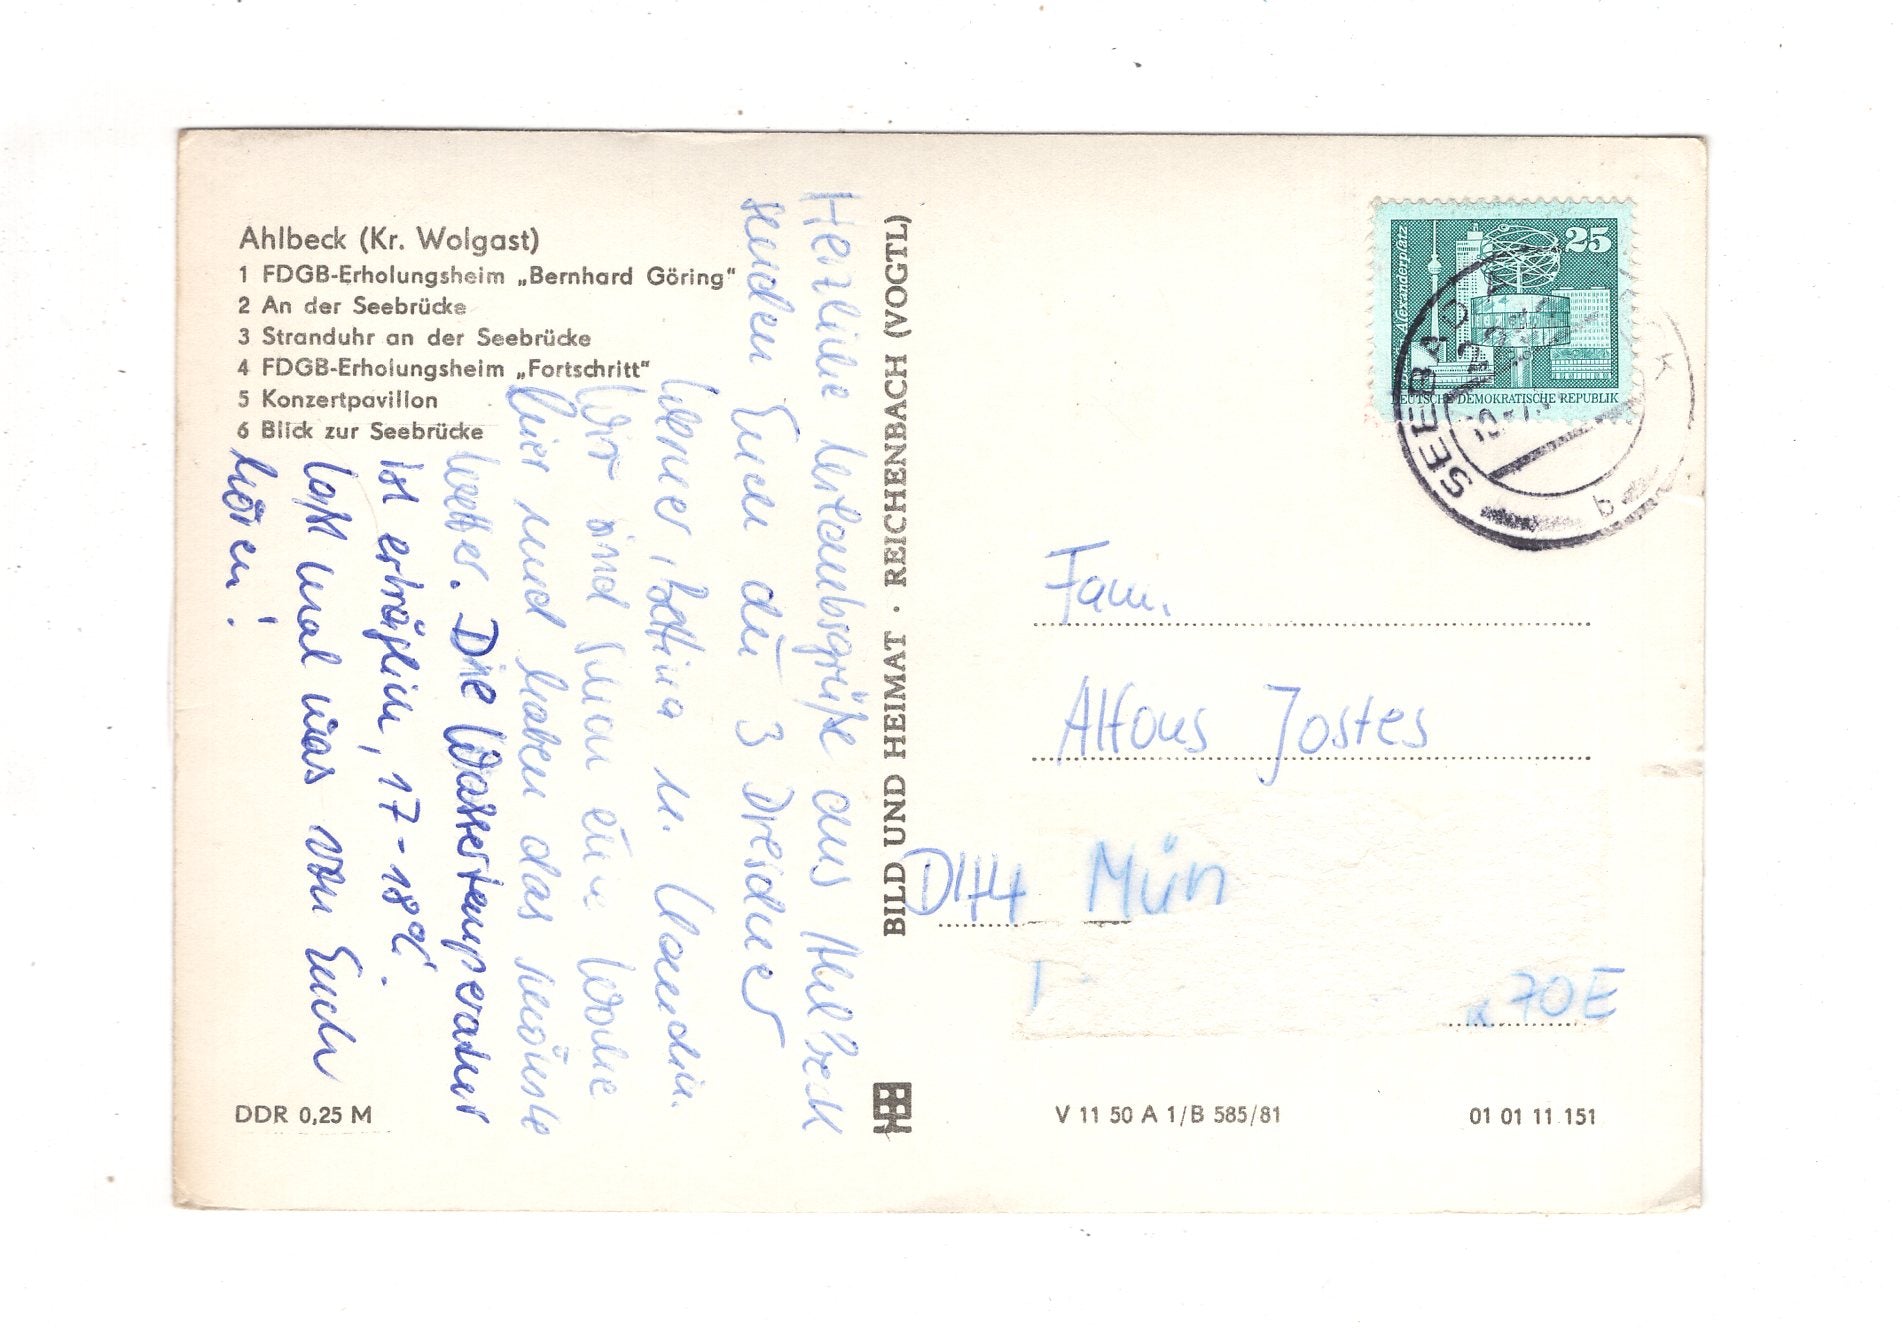 Ahlbeck (Kr. Wolgast)
1 FDGB-Erholungsheim „Bernhard Göring"
2 An der Seebrücke
3 Stranduhr an der Seebrücke
4 FDGB-Erholungsheim „Fortschritt"
5 Konzertpavillon
6 Blick zur Seebrücke
Herzliche Urlaubsgrüße aus Ahlbeck
senden Euch die 3 Dresdner
Werner, Bettina u. Claudia.
Wir sind schon eine Woche
hier und haben das schönste
Wetter. Die Wassertemperatur
ist erträglich, 17-18°C.
Laßt mal was von Euch
hören!
DDR 0,25 M
BILD UND HEIMAT · REICHENBACH (VOGTL)
Alexanderplatz
25
DEUTSCHE DEMOKRATISCHE REPUBLIK
SEEBAD
b
Fam.
Alfons Jostes
D44 Mün
70E
V 11 50 A 1/B 585/81
01 01 11 151